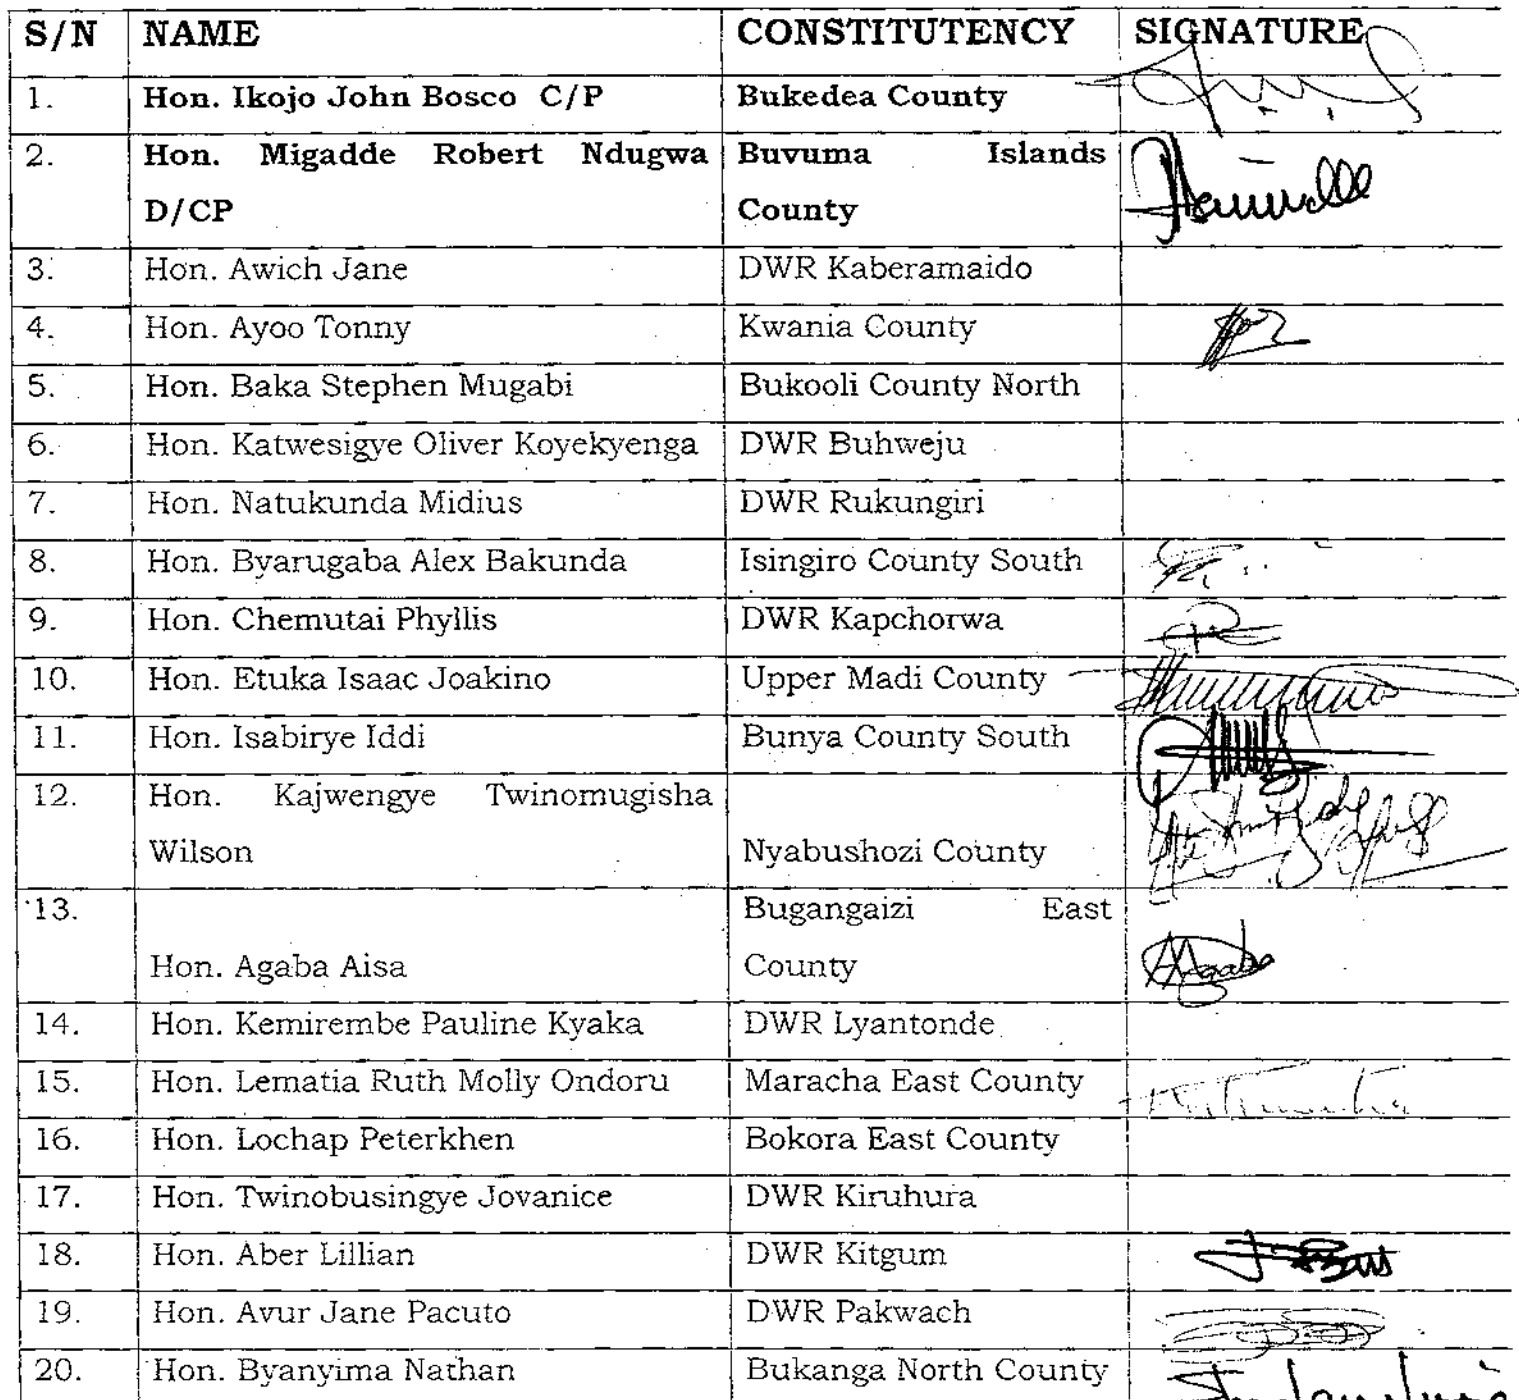 S/N NAME CONSTITUTENCY SIGNATURE
1. Hon. Ikojo John Bosco C/P Bukedea County
2. Hon. Migadde Robert Ndugwa Buvuma Islands
D/CP County
3. Hon. Awich Jane DWR Kaberamaido
4. Hon. Ayoo Tonny Kwania County
5. Hon. Baka Stephen Mugabi Bukooli County North
6. Hon. Katwesigye Oliver Koyekyenga DWR Buhweju
7. Hon. Natukunda Midius DWR Rukungiri
8. Hon. Byarugaba Alex Bakunda Isingiro County South
9. Hon. Chemutai Phyllis DWR Kapchorwa
10. Hon. Etuka Isaac Joakino Upper Madi County
11. Hon. Isabirye Iddi Bunya County South
12. Hon. Kajwengye Twinomugisha
Wilson Nyabushozi County
13. Bugangaizi East
Hon. Agaba Aisa County
14. Hon. Kemirembe Pauline Kyaka DWR Lyantonde
15. Hon. Lematia Ruth Molly Ondoru Maracha East County
16. Hon. Lochap Peterkhen Bokora East County
17. Hon. Twinobusingye Jovanice DWR Kiruhura
18. Hon. Aber Lillian DWR Kitgum
19. Hon. Avur Jane Pacuto DWR Pakwach
20. Hon. Byanyima Nathan Bukanga North County